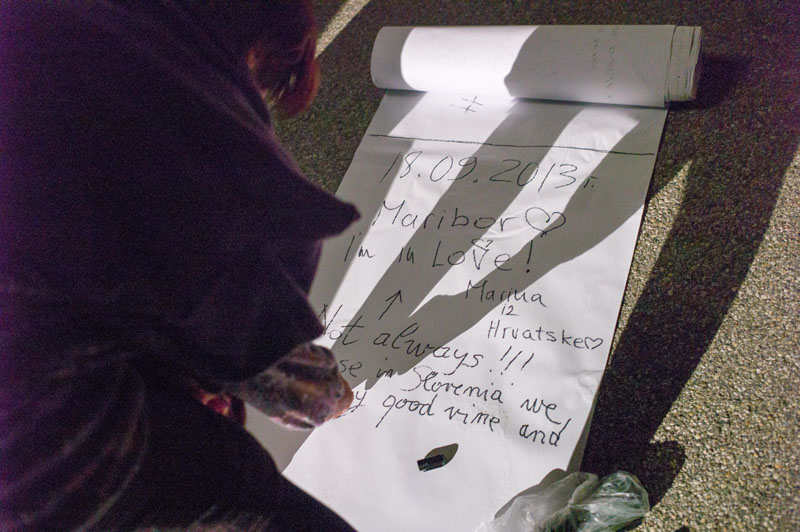 18.09.2013г.
Maribor ♡
I'm in Love!
↑ Marina
iz
Hrvatske ♡
Not always!!!
in Slovenia we
good vine and